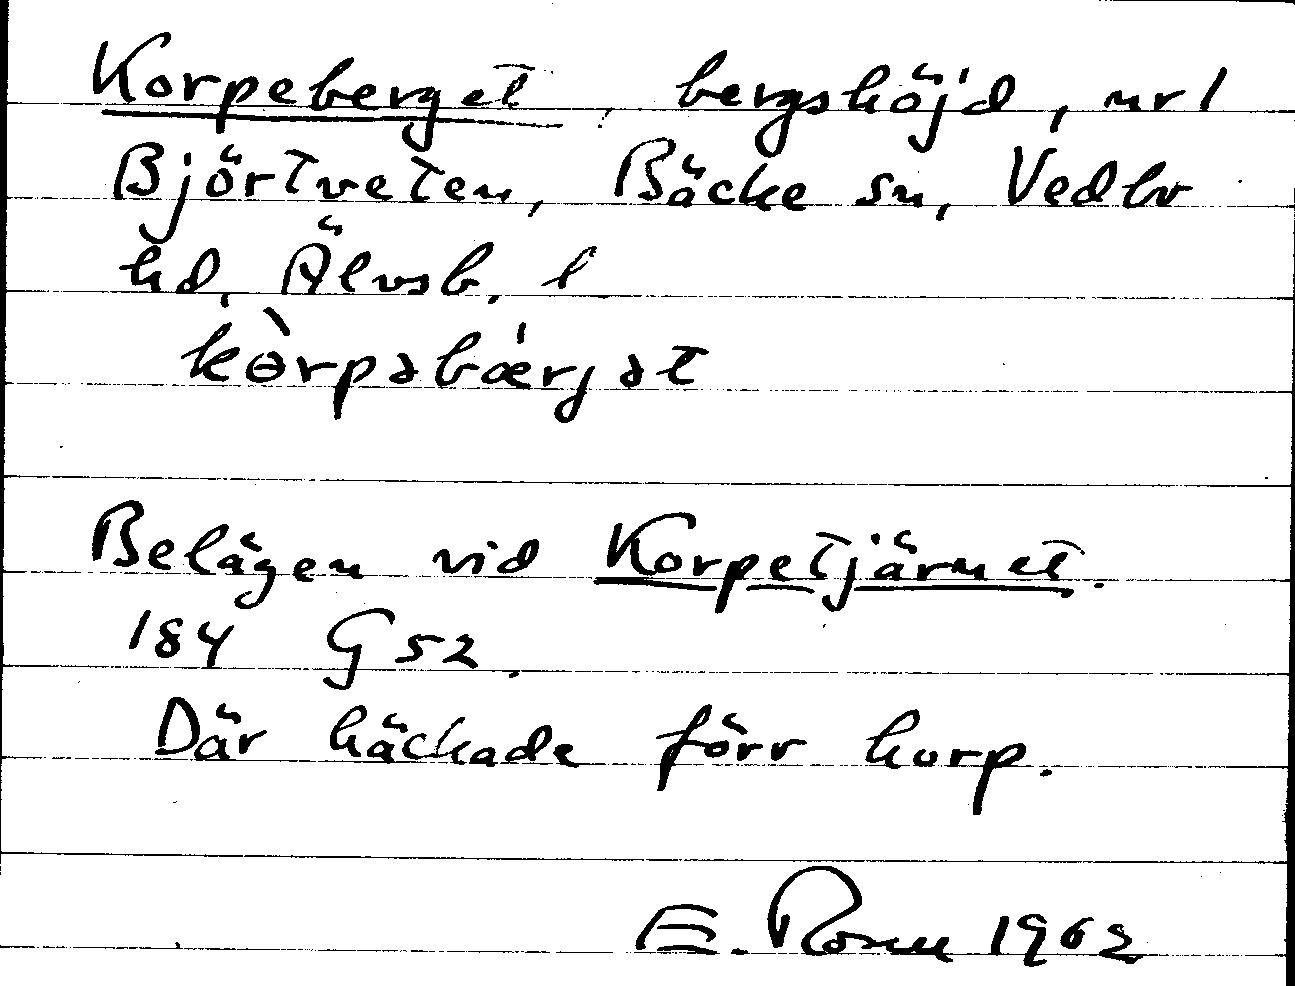 Korpeberget, bergshöjd, nr 1
Björtveten, Bäcke sn, Vedbv
hd, Älvsb. l
kὸrpəbæ̍rjət
Belägen vid Korpetjärnet.
184 G52.
Där häckade förr korp.
E. 1962